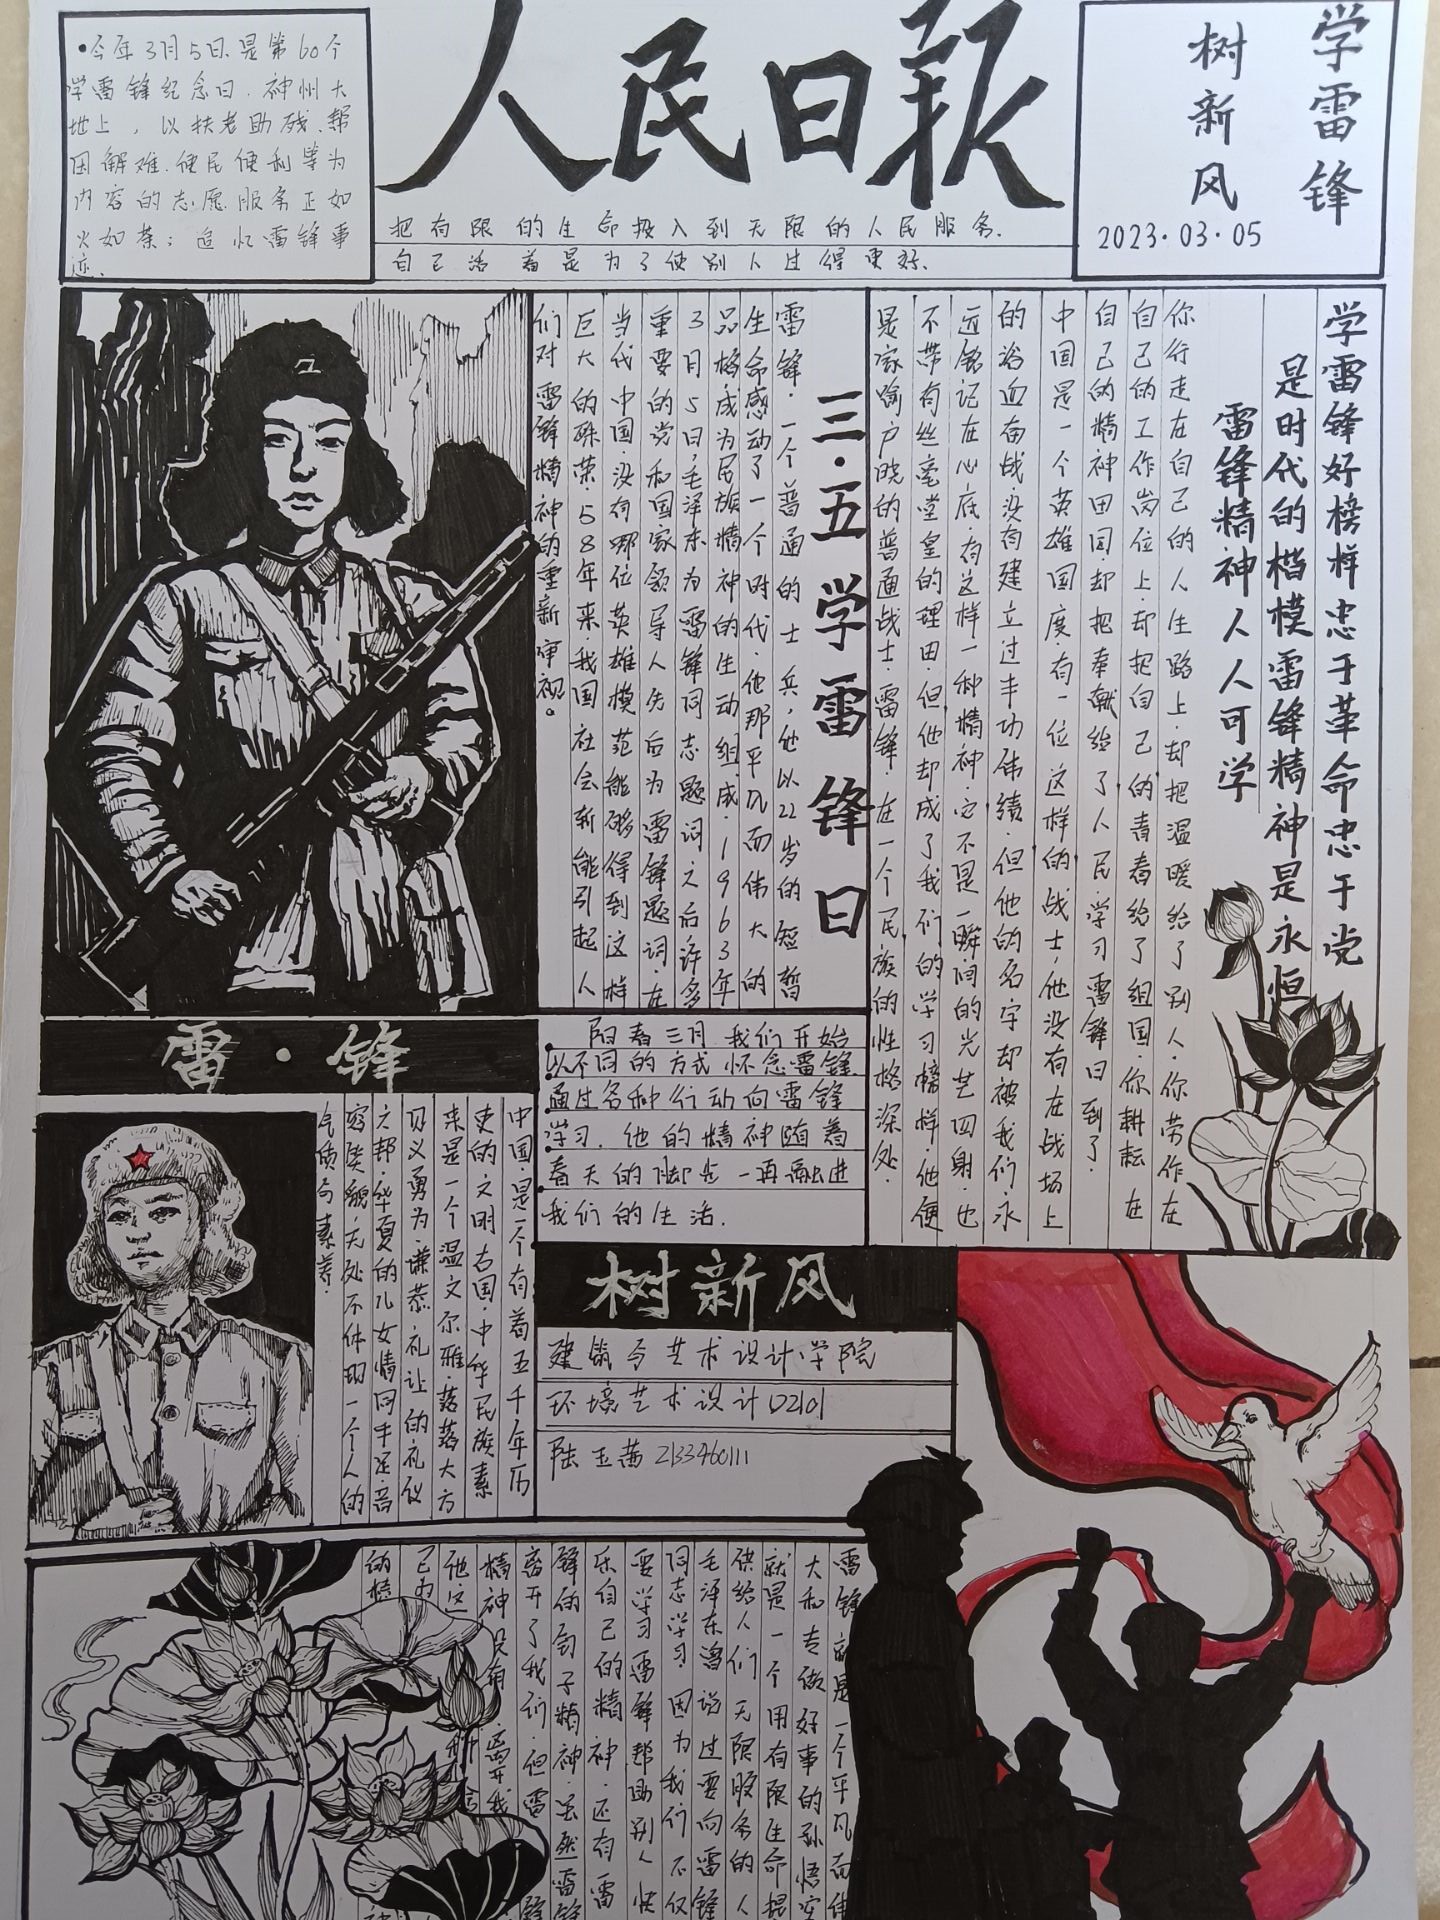 •今年3月5日.是第60个
学雷锋纪念日.神州大
地上，以扶老助残、帮
困解难.便民便利等为
内容的志愿服务正如
火如荼；追忆雷锋事
迹.
人民日報
把有限的生命投入到无限的人民服务.
自己活着是为了使别人过得更好.
学雷锋
树新风
2023·03·05
学雷锋好榜样忠于革命忠于党
是时代的楷模雷锋精神是永恒
雷锋精神人人可学
你行走在自己的人生路上.却把温暖给了别人.你劳作在
自己的工作岗位上.却把自己的青春给了祖国.你耕耘在
自己的精神田园却把奉献给了人民.学习雷锋日到了.
中国是一个英雄国度.有一位这样的战士,他没有在战场上
的浴血奋战.没有建立过丰功伟绩.但他的名字却被我们永
远铭记在心底.有这样一种精神.它不是一瞬间的光芒四射.也
不带有丝毫堂皇的理由.但他却成了我们的学习榜样.他便
是家喻户晓的普通战士.雷锋.在一个民族的性格深处.
三·五学雷锋日
雷锋.一个普通的士兵,他以22岁的短暂
生命感动了一个时代.他那平凡而伟大的
品格成为民族精神的生动组成.1963年
3月5日,毛泽东为雷锋同志题词之后许多
重要的党和国家领导人先后为雷锋题词.在
当代中国.没有哪位英雄模范能够得到这样
巨大的殊荣.58年来.我国社会渐能引起人
们对雷锋精神的重新审视。
雷·锋
中国.是一个有着五千年历
史的文明古国.中华民族素
来是一个温文尔雅.落落大方
见义勇为.谦恭礼让的礼仪
之邦.华夏的儿女情同手足.音
容笑貌.无处不体现一个人的
气质与素养.
阳春三月.我们开始
以不同的方式怀念雷锋
通过各种行动向雷锋
学习.他的精神随着
春天的脚步一再融进
我们的生活.
树新风
建筑与艺术设计学院
环境艺术设计02101
陆玉茜 2133460111
雷锋就是一个平凡而伟
大和专做好事的孙悟空
就是一个用有限生命提
供给人们无限服务的人
毛泽东曾说过要向雷锋
同志学习.因为我们不仅
要学习雷锋帮助别人快
乐自己的精神.还有雷
锋的钉子精神.虽然雷锋
离开了我们.但雷锋
精神没有离开我
他这种
已为
的榜